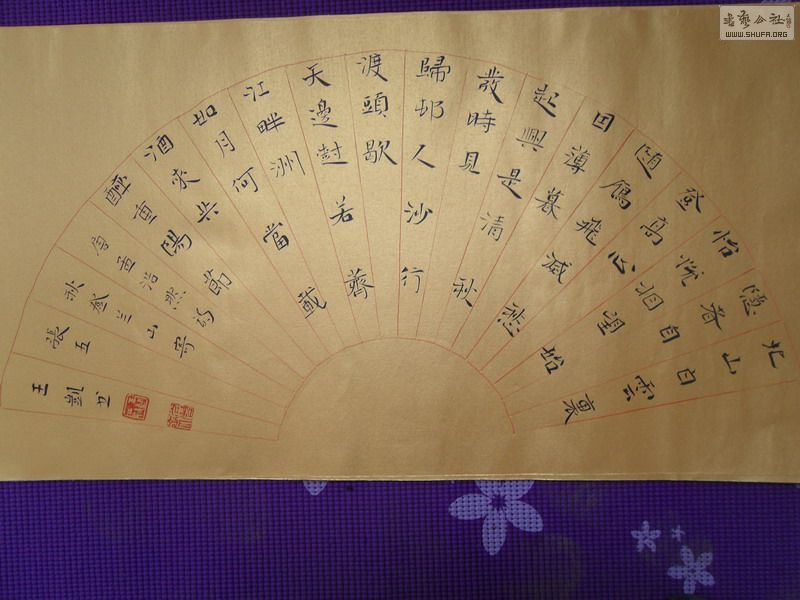 北山白雲裏
隱者自
怡悅相望始
登高心
隨鴈飛滅愁
因薄暮
起興是清秋
發時見
歸邨人沙行
渡頭歇
天邊樹若薺
江畔洲
如月何當載
酒來共
醉重陽節
唐孟浩然詩
秋登兰山寄
張五
王凱书
書藝公社
WWW.SHUFA.ORG